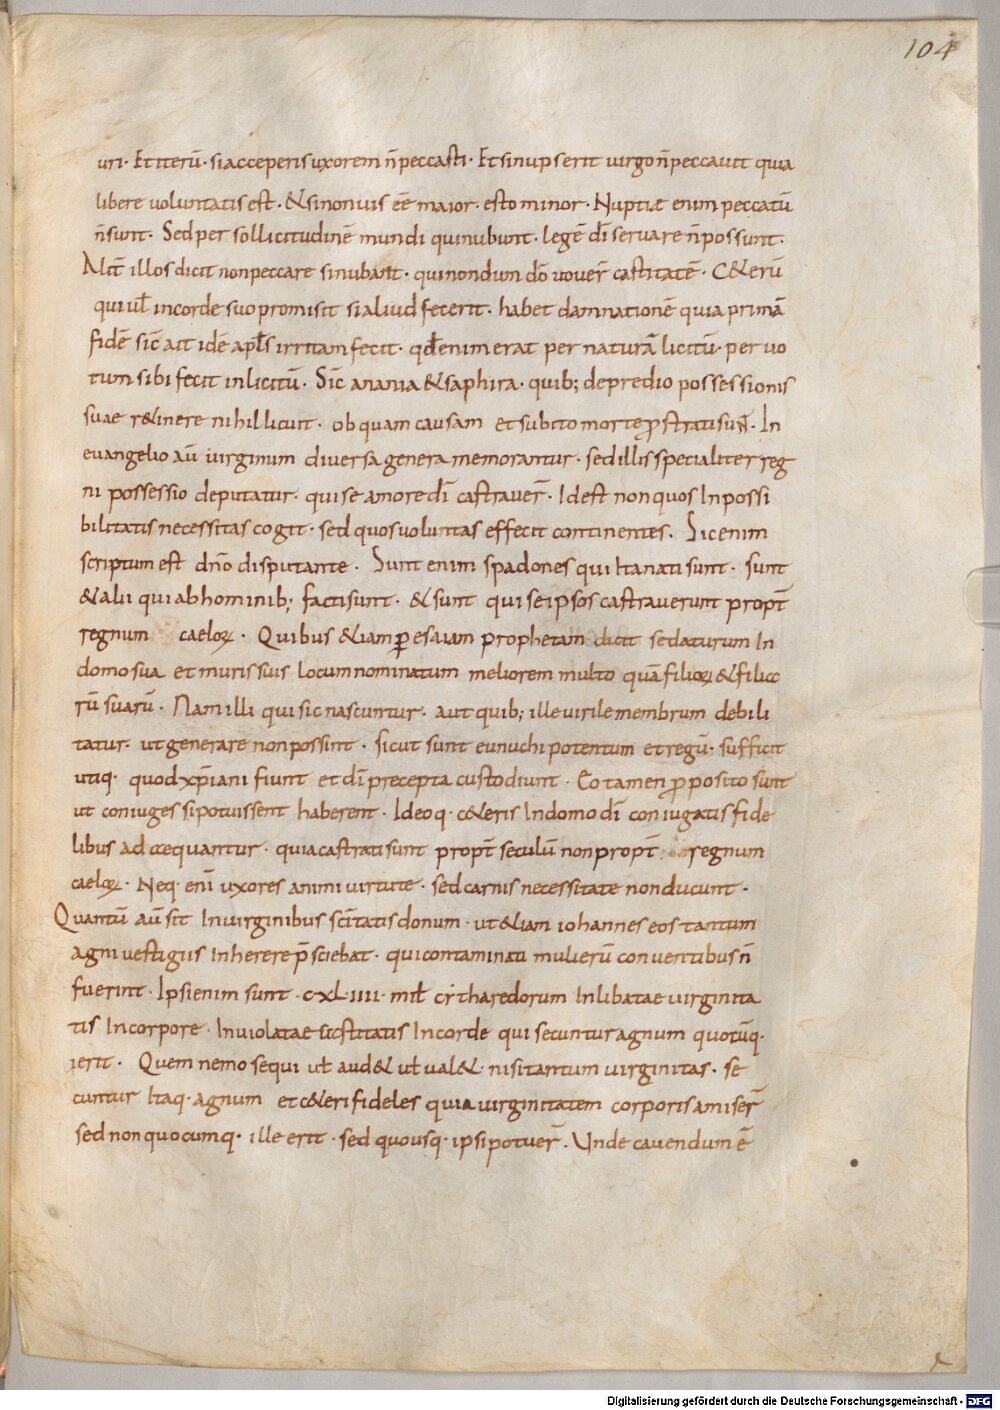 104
uri· Et iterū· si acceperis uxorem n̄ peccasti· Et si nupserit uirgo n̄ peccauit quia
libere uoluntatis est· & si non uis eē maior· esto minor· Nuptiæ enim peccatū
n̄ sunt· Sed per sollicitudinē mundi qui nubunt· legē dī seruare n̄ possunt·
Alit̄ illos dicit non peccare si nubant· qui nondum dō uouer̄ castitatē· C&erū
qui ul̄ in corde suo promisit si aliud fecerit· habet damnationē quia primā
fidē sic̄ ait idē apl̄s irritam fecit· qđ enim erat per naturā licitū· per uo
tum sibi fecit inlicitū· Sic̄ anania & saphira· quib; de predio possessionis
suae r&inere nihil licuit· ob quam causam et subito morte ꝓstrati sun̄· In
euangelio aū uirginum diuersa genera memorantur· sed illis specialiter reg
ni possessio deputatur· qui se amore dī castrauer̄· Id est non quos Inpossi
bilitatis necessitas cogit· sed quos uoluntas effecit continentes· Sic enim
scriptum est dn̄o disputante· Sunt enim spadones qui Ita nati sunt· sunt
& alii qui ab hominib; facti sunt· & sunt qui se ipsos castrauerunt propt̄
regnum caeloꝝ· Quibus &iam ꝑ esaiam prophetam dicit se daturum In
domo sua et muris suis locum nominatum meliorem multo quā filioꝝ & filia
rū suarū· Nam illi qui sic nascuntur· aut quib; ille uirile membrum debili
tatur· ut generare non possint· sicut sunt eunuchi potentum et regū· sufficit
utiq· quod xp̄iani fiunt et dī precepta custodiunt· Eo tamen ꝓposito sunt
ut coniuges si potuissent haberent· Ideoq· c&eris In domo dī coniugatis fide
libus adæquantur· quia castrati sunt propt̄ seculū non propt̄ regnum
caeloꝝ· Neq· enī uxores animi uirtute· sed carnis necessitate non ducunt·
Quantū aū sit In uirginibus sc̄itatis donum· ut &iam iohannes eos tantum
agni uestigiis Inherere p̄sciebat· qui contaminati mulierū conuentibus n̄
fuerint· Ipsi enim sunt ·c·xL·iiii· mił citharedorum Inlibatae uirginita
tis In corpore· Inuiolatae castitatis In corde qui secuntur agnum quocūq·
ierit· Quem nemo sequi uł aud& uł ual& nisi tantum uirginitas· se
cuntur Itaq· agnum et c&eri fideles quia uirginitatem corporis amiser̄
sed non quocumq· ille erit· sed quousq· ipsi potuer̄· Unde cauendum ē
Digitalisierung gefördert durch die Deutsche Forschungsgemeinschaft - DFG